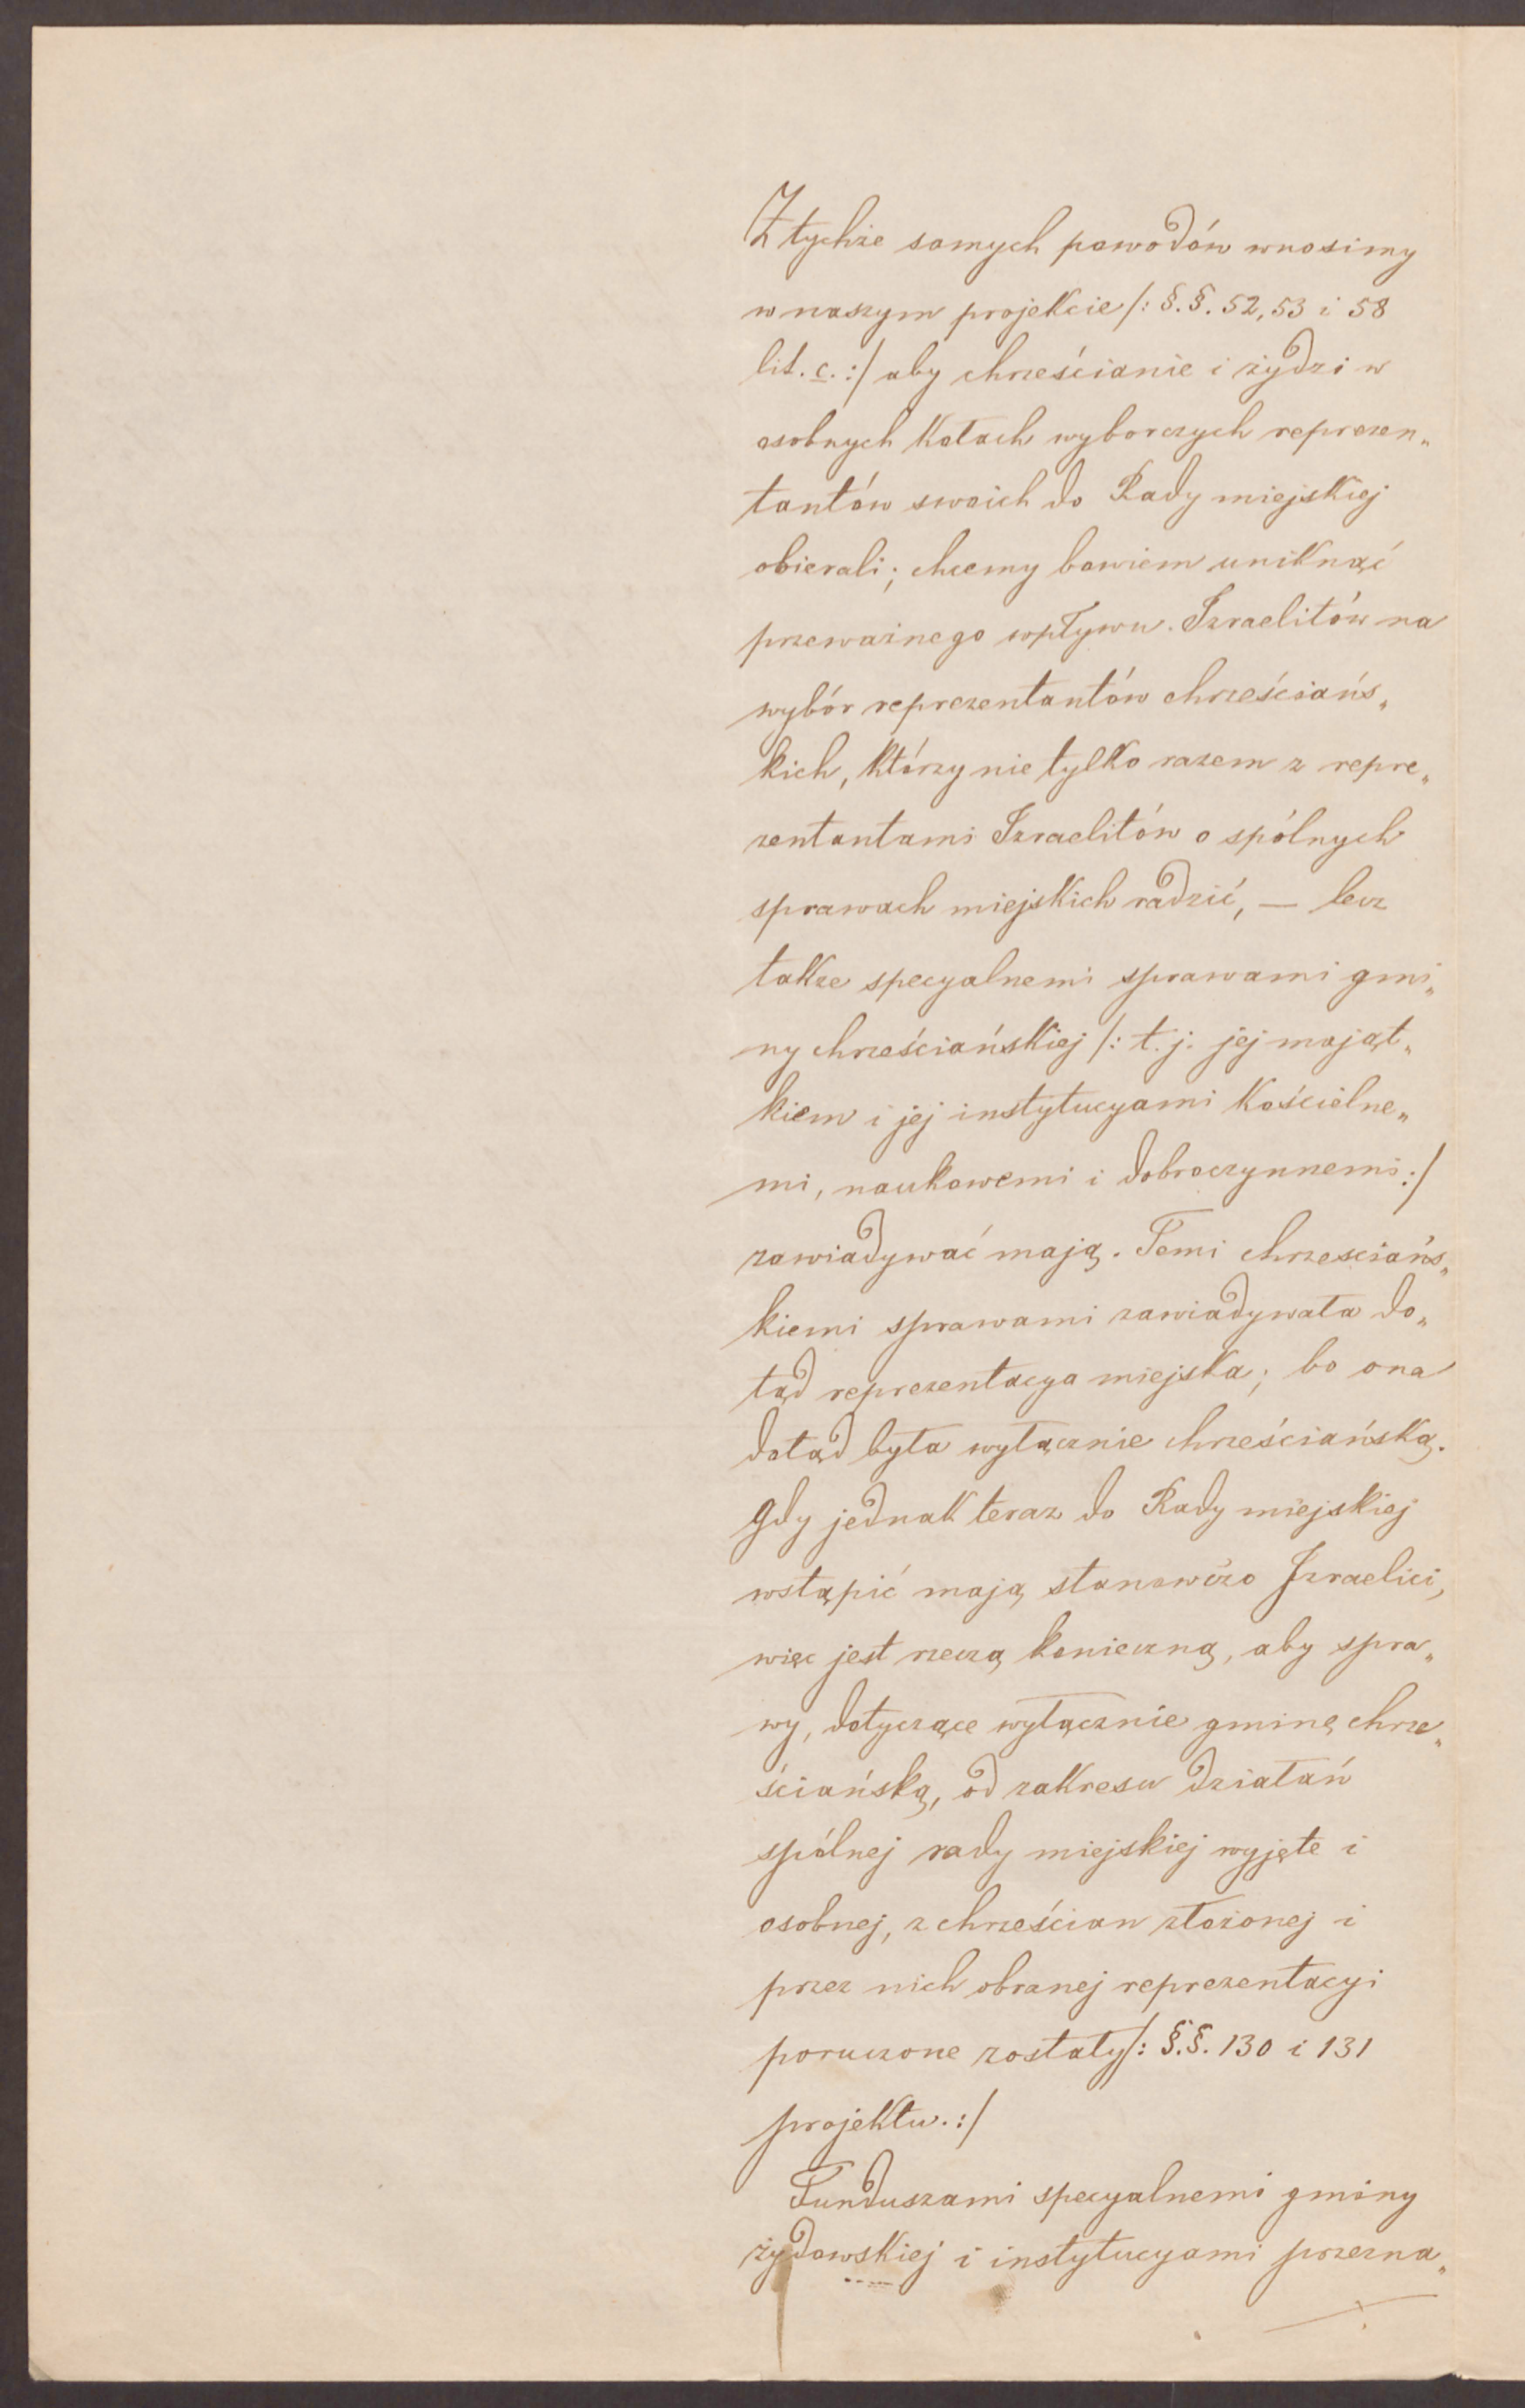 Z tychże samych powodów wnosimy
w naszym projekcie /: §.§. 52, 53 i 58
lit. c. :/ aby chrześcianie i żydzi w
osobnych Kołach wyborczych reprezen„
tantów swoich do Rady miejskiej
obierali; chcemy bowiem uniknąć
przeważnego wpływu Izraelitów na
wybór reprezentantów chrześciańs„
kich, którzy nie tylko razem z repre„
zentantami Izraelitów o spólnych
sprawach miejskich radzić, — lecz
także specyalnemi sprawami gmi„
ny chrześciańskiej /: t. j. jej mająt„
kiem i jej instytucyami Kościelne„
mi, naukowemi i dobroczynnemi :/
zawiadywać mają. Temi chrzesciańs„
kiemi sprawami zawiadywała do„
tąd reprezentacya miejska; bo ona
dotąd była wyłącznie chrześciańską.
Gdy jednak teraz do Rady miejskiej
wstąpić mają stanowczo Izraelici,
więc jest rzeczą konieczną, aby spra„
wy, dotyczące wyłącznie gminę chrze„
ściańską, od zakresu działań
spólnej rady miejskiej wyjęte i
osobnej, z chrześcian złożonej i
przez nich obranej reprezentacyi
poruczone zostały /: §.§. 130 i 131
projektu. :/
Funduszami specyalnemi gminy
żydowskiej i instytucyami przezna„